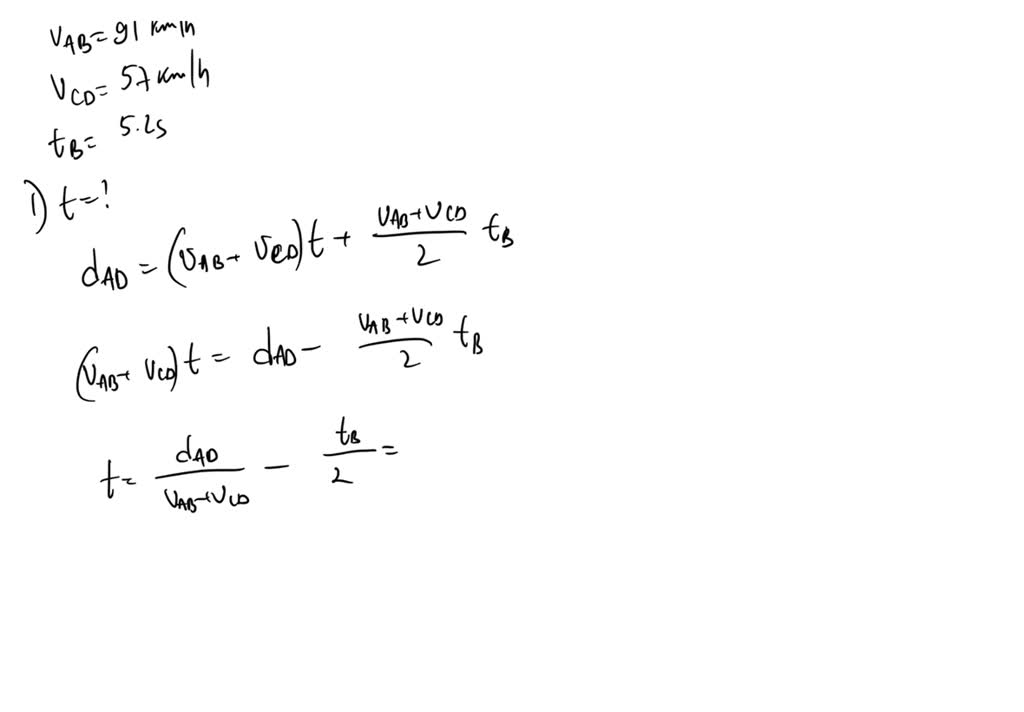 v_AB = 91 km/h
v_CD = 57 km/h
t_B = 5.2s
1) t = ?
d_AD = (v_AB + v_CD)t + (v_AB + v_CD)/2 t_B
(v_AB + v_CD)t = d_AD − (v_AB + v_CD)/2 t_B
t = d_AD/(v_AB + v_CD) − t_B/2 =